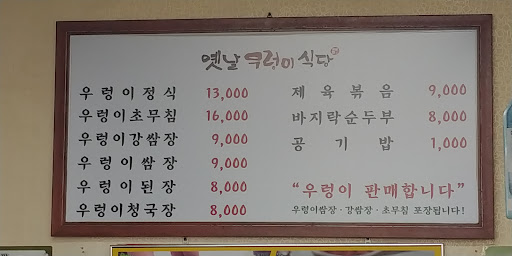 옛날 우렁이 식당
우렁이정식 13,000
우렁이초무침 16,000
우렁이강쌈장 9,000
우렁이쌈장 9,000
우렁이된장 8,000
우렁이청국장 8,000
제육볶음 9,000
바지락순두부 8,000
공기밥 1,000
“우렁이 판매합니다”
우렁이쌈장 · 강쌈장 · 초무침 포장됩니다!